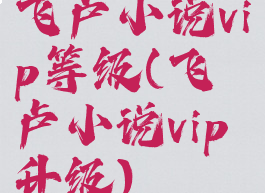 飞卢小说vi
p等级(飞
卢小说vip
升级)